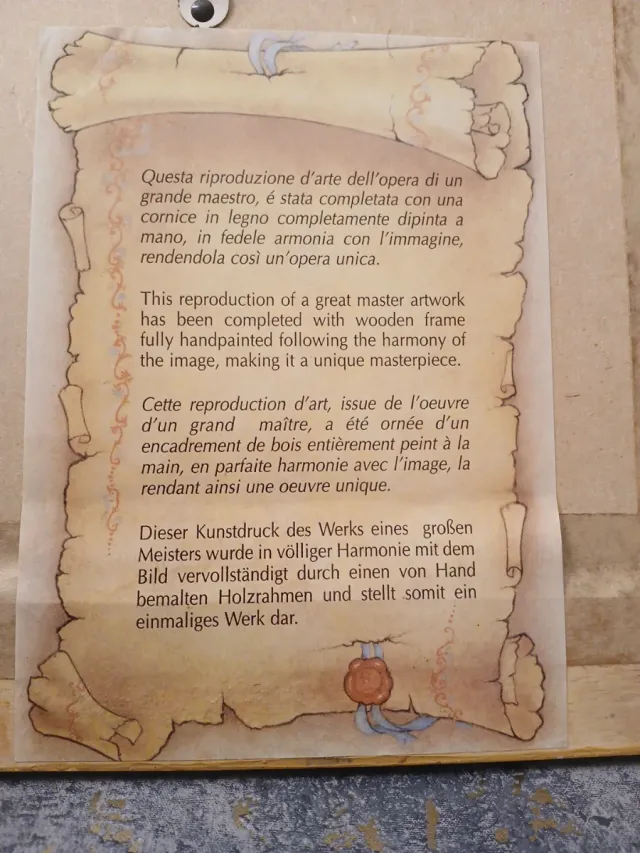 Questa riproduzione d'arte dell'opera di un
grande maestro, é stata completata con una
cornice in legno completamente dipinta a
mano, in fedele armonia con l'immagine,
rendendola così un'opera unica.
This reproduction of a great master artwork
has been completed with wooden frame
fully handpainted following the harmony of
the image, making it a unique masterpiece.
Cette reproduction d'art, issue de l'oeuvre
d'un grand maître, a été ornée d'un
encadrement de bois entièrement peint à la
main, en parfaite harmonie avec l'image, la
rendant ainsi une oeuvre unique.
Dieser Kunstdruck des Werks eines großen
Meisters wurde in völliger Harmonie mit dem
Bild vervollständigt durch einen von Hand
bemalten Holzrahmen und stellt somit ein
einmaliges Werk dar.